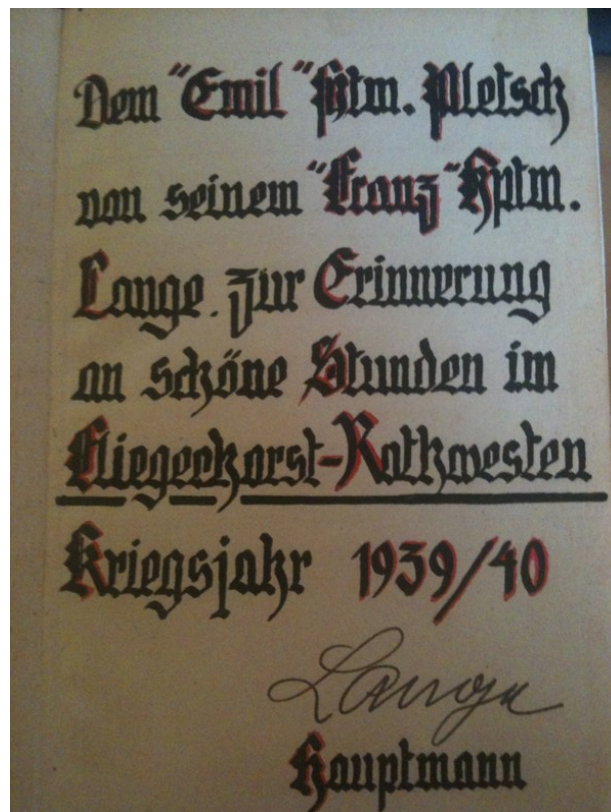 Dem "Emil" Hptm. Pletsch
von seinem "Franz" Hptm.
Lange. zur Erinnerung
an schöne Stunden im
Fliegerhorst-Rothwesten
Kriegsjahr 1939/40
Lange
Hauptmann